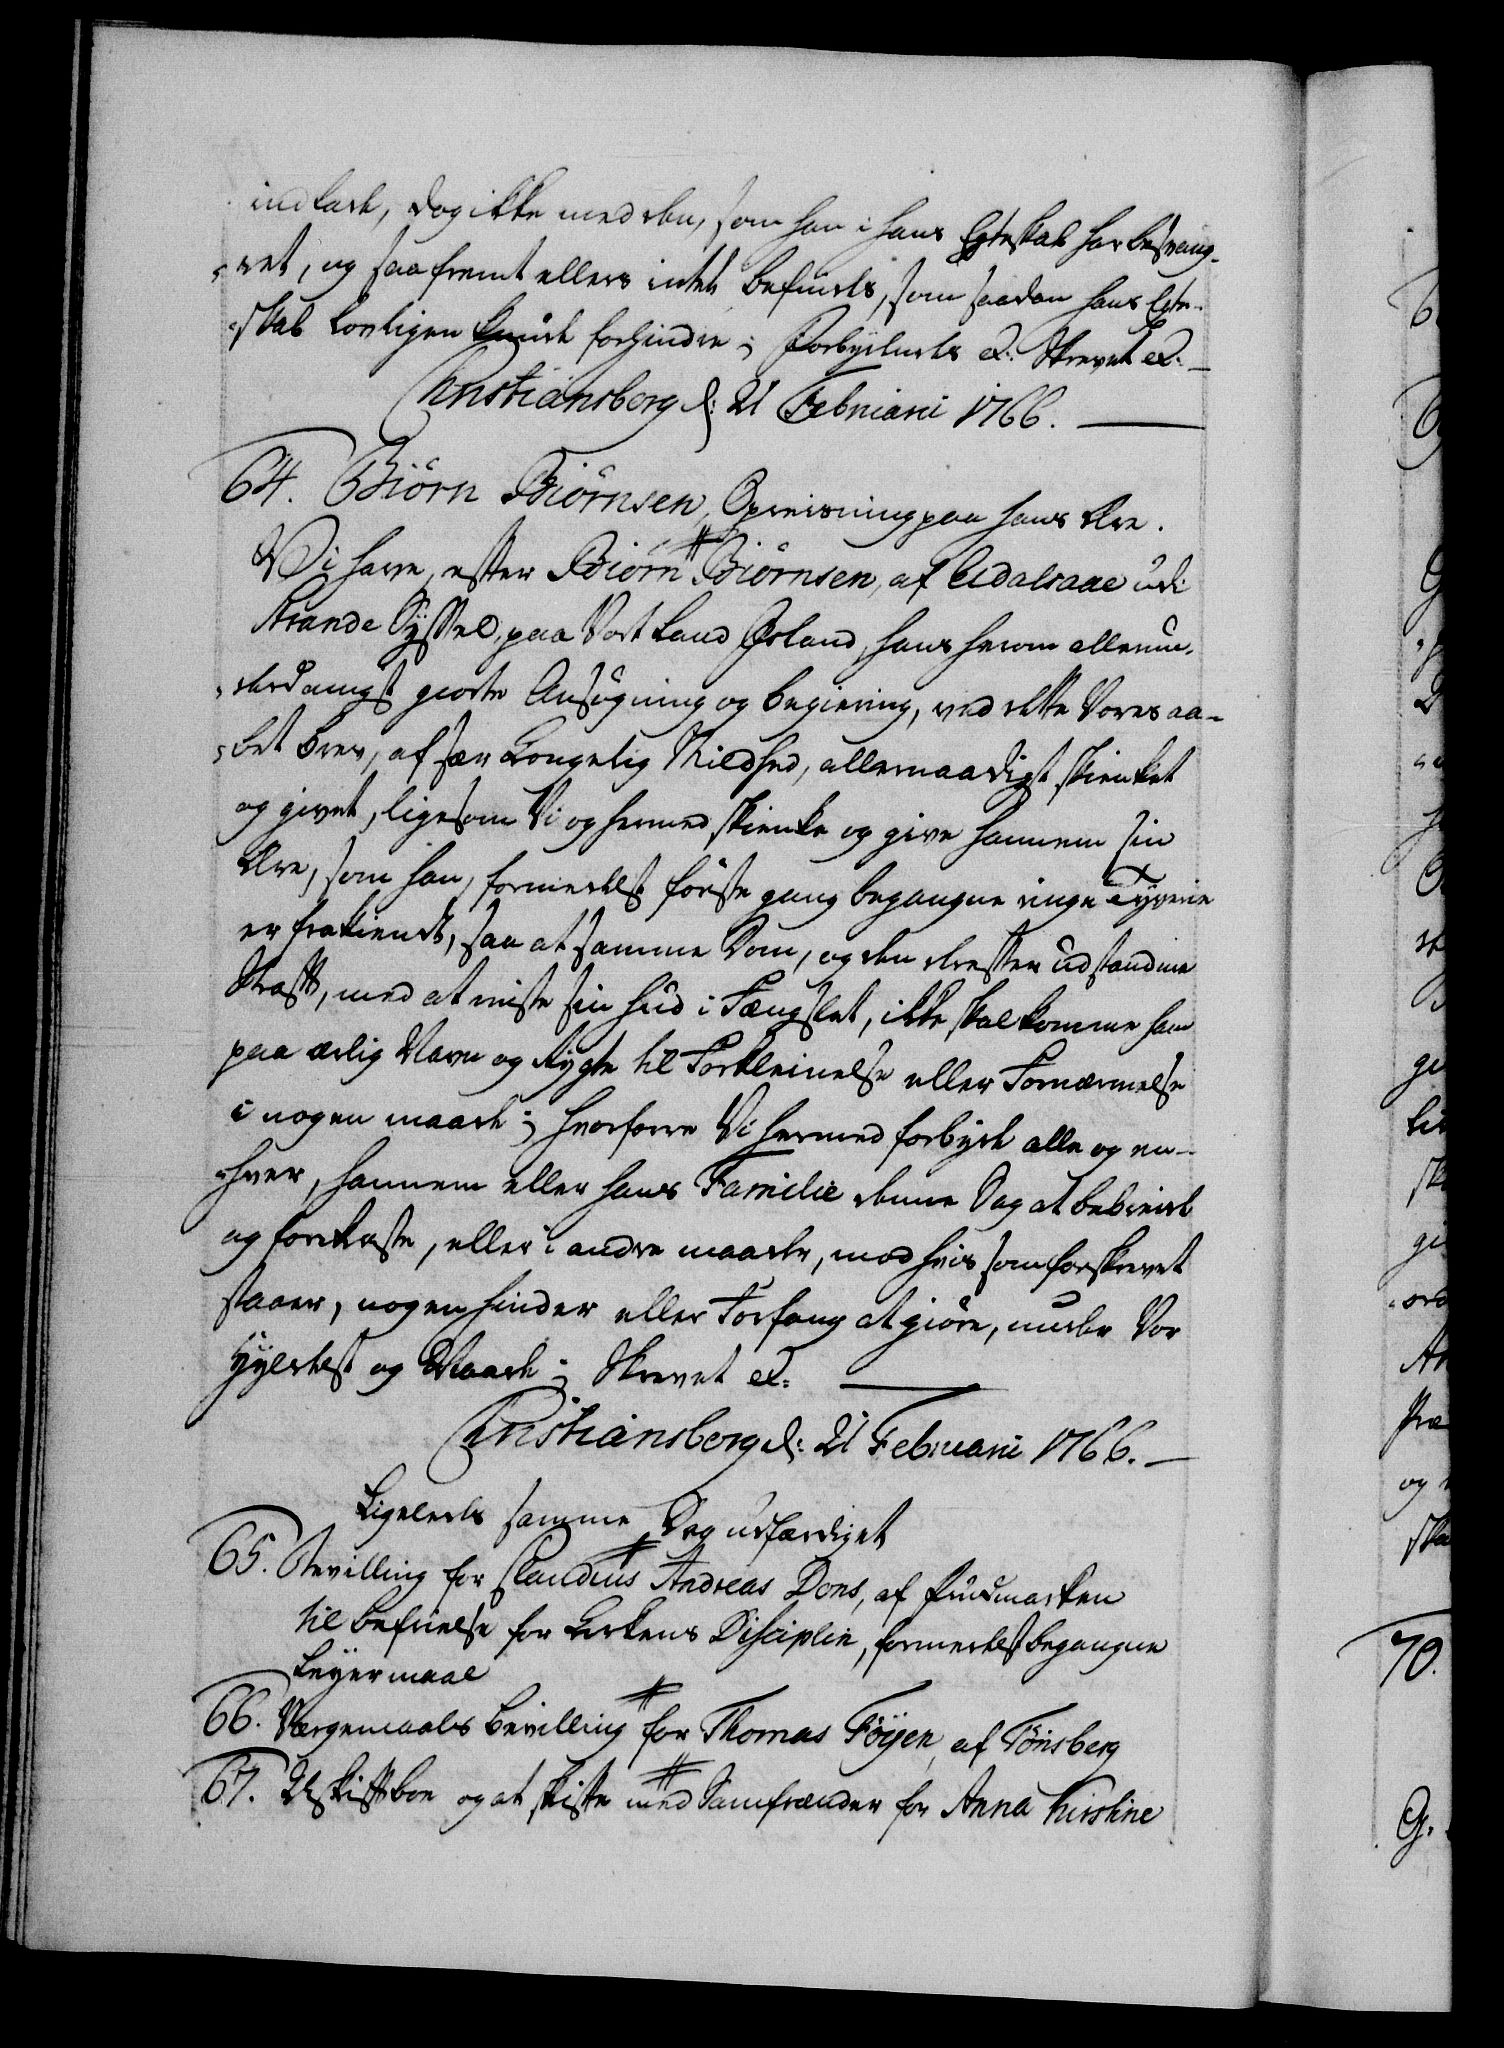 indlade, dog ikke med den, som han i hans Egteskab har besvang-
ret, og saafremt ellers intet befindes, som saadan hans Egte-
skab lovligen kunde forhindre; Forbydendes &c: Skrevet &c:
Christiansborg d: 21 Februarii 1766.
64. Biörn Biörnsen, Opreisning paa hans Ære.
Vi have, efter Biörn Biörnsen, af Udalsaae udi
Strande Syssel, paa Vort Land Island, hans herom allerun-
derdanigst giorte Ansøgning og begiering, ved dette Vores aa-
bet brev, af sær Kongelig Mildhed, allernaadigst skienket
og givet, ligesom Vi og hermed skienke og give hannem sin
Ære, som han, formedelst første gang begangne ringe Tyverie
er frakiendt, saa at samme Dom, og den derefter udstandne
Straff, med at miste sin hud i Fængslet, ikke skal komme ham
paa ærlig Navn og Rygte til Forkleinelse eller Fornærmelse
i nogen maade; hvorfore Vi hermed forbyde alle og en-
hver, hannem eller hans Familie denne Sag at bebreide
og forekaste, eller i andre maader, mod hvis som forskrevet
staaer, nogen hinder eller Forfang at giøre, under Vor
Hyldest og Naade; Skrevet &c:
Christiansborg d: 21 Februarii 1766.
Ligeledes samme Dag udfærdiget
65. Bevilling for Claudius Andreas Dons, af Findmarken
til befrielse for Kirkens Disciplin, formedelst begangne
Leyermaal
66. Værgemaals Bevilling for Thomas Föyen, af Tönsberg
67. Uskiftboe og at skifte med Samfrænder for Anna Kirstine